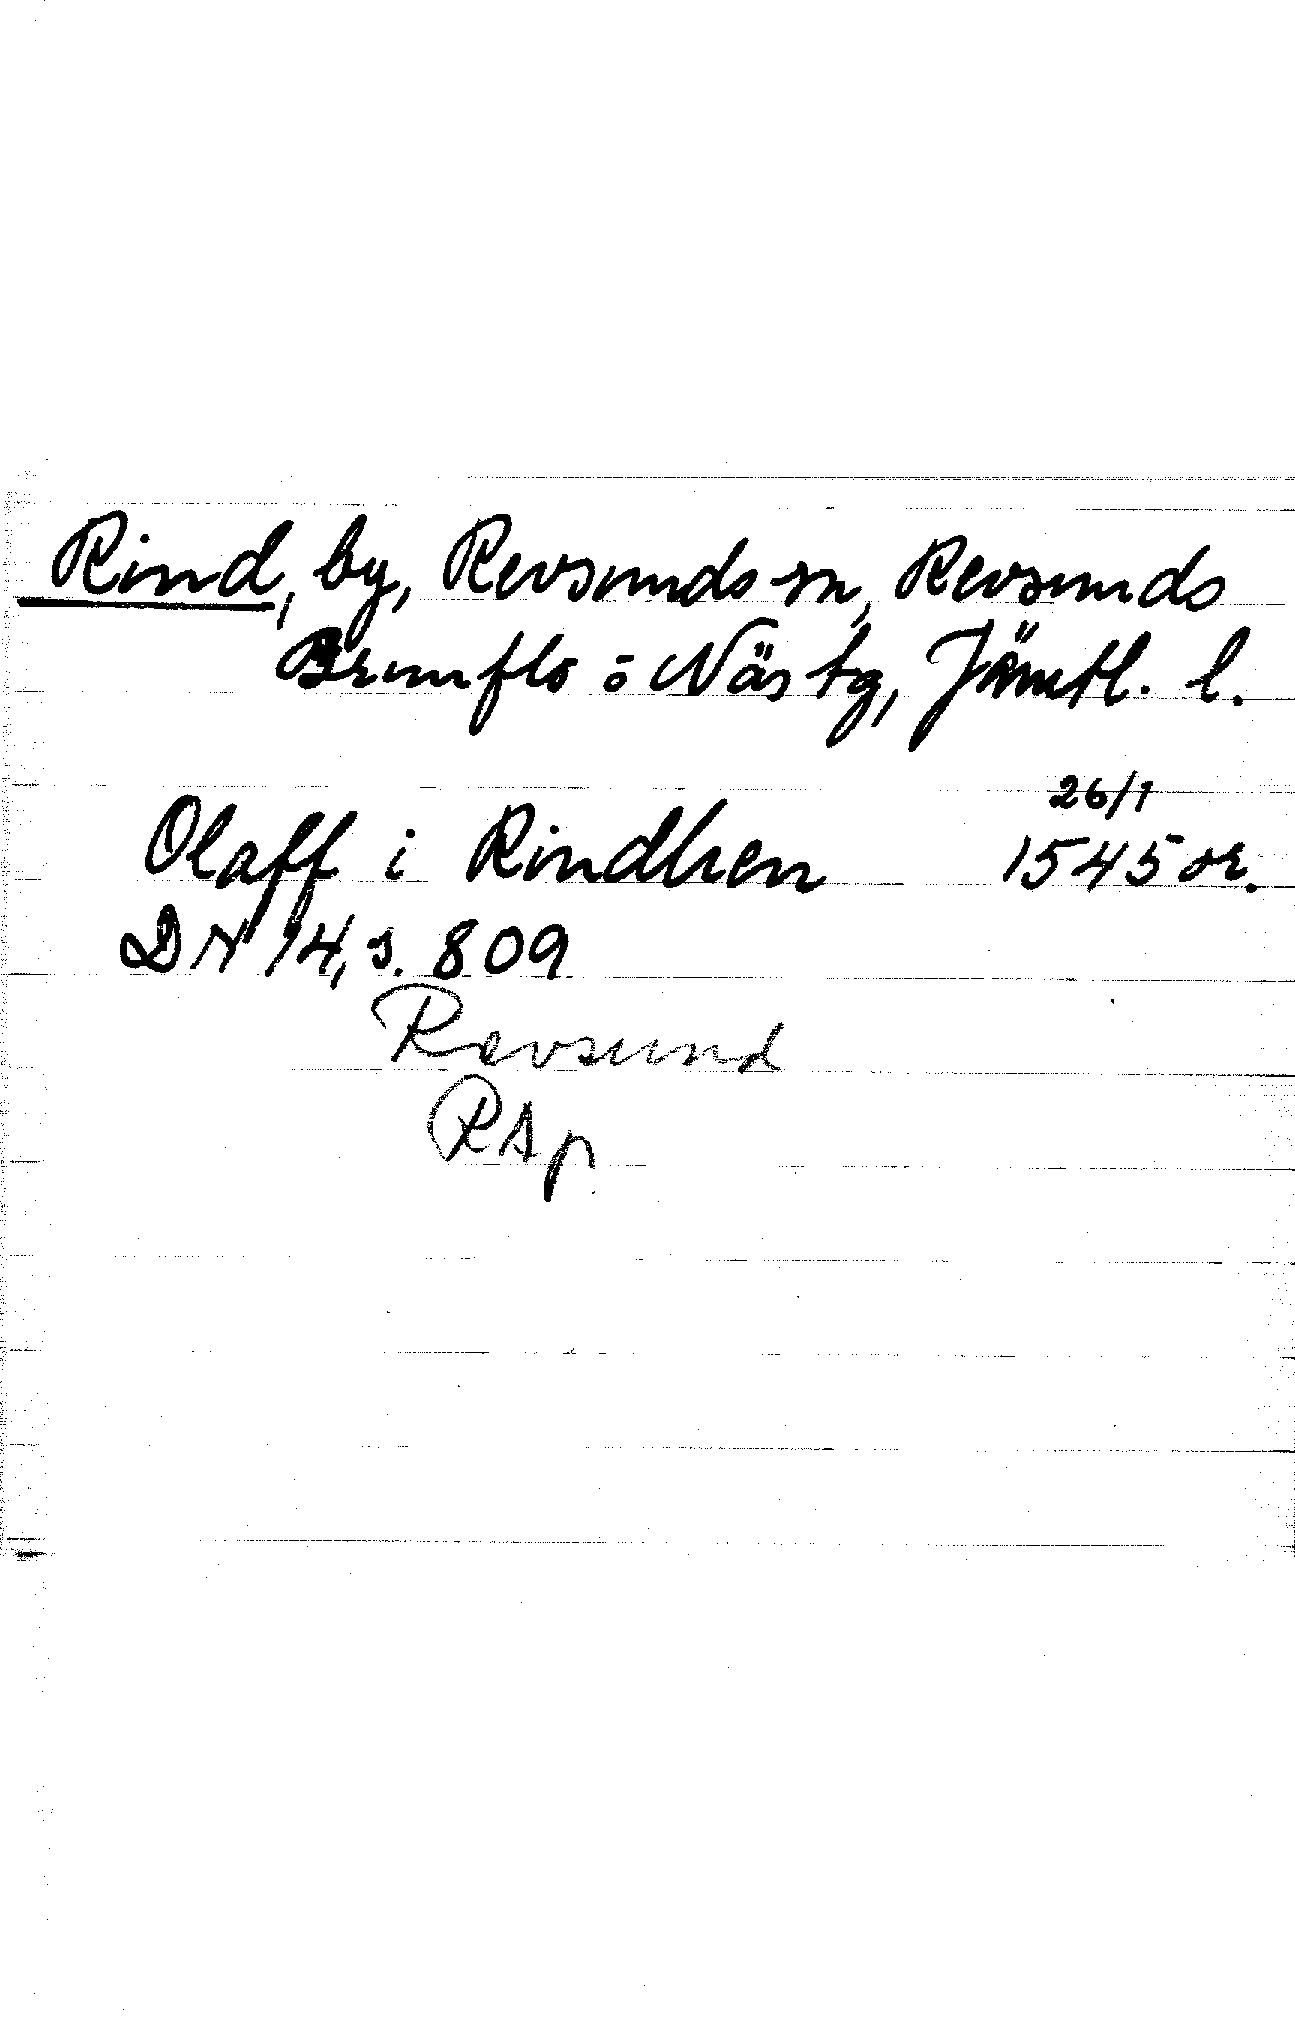 Rind, by, Revsunds sn, Revsunds
Brunflo o Näs tg, Jämtl. l.
26/1
Olaff i Rindhen 1545 or.
DN 14, s. 809
Revsund
RAp